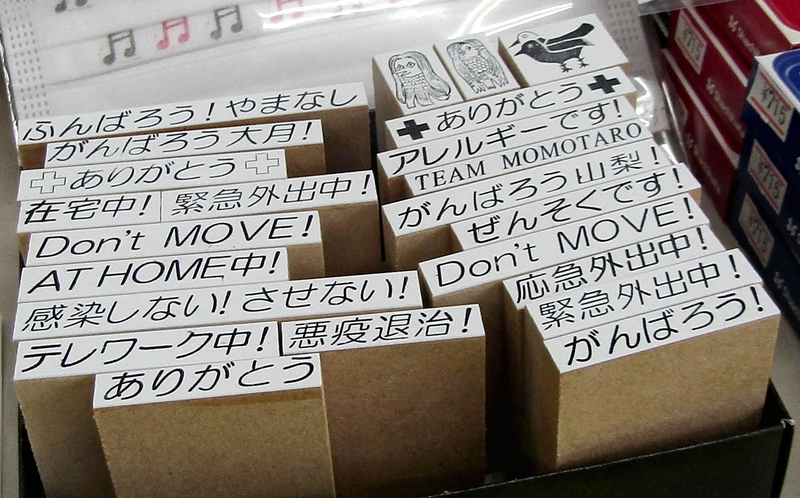 ふんばろう！やまなし
がんばろう大月！
ありがとう
在宅中！
緊急外出中！
Don't MOVE！
AT HOME中！
感染しない！させない！
テレワーク中！
悪疫退治！
ありがとう
ありがとう
アレルギーです！
TEAM MOMOTARO
がんばろう山梨！
ぜんそくです！
Don't MOVE！
応急外出中！
緊急外出中！
がんばろう！
¥715
¥715
¥715
¥715